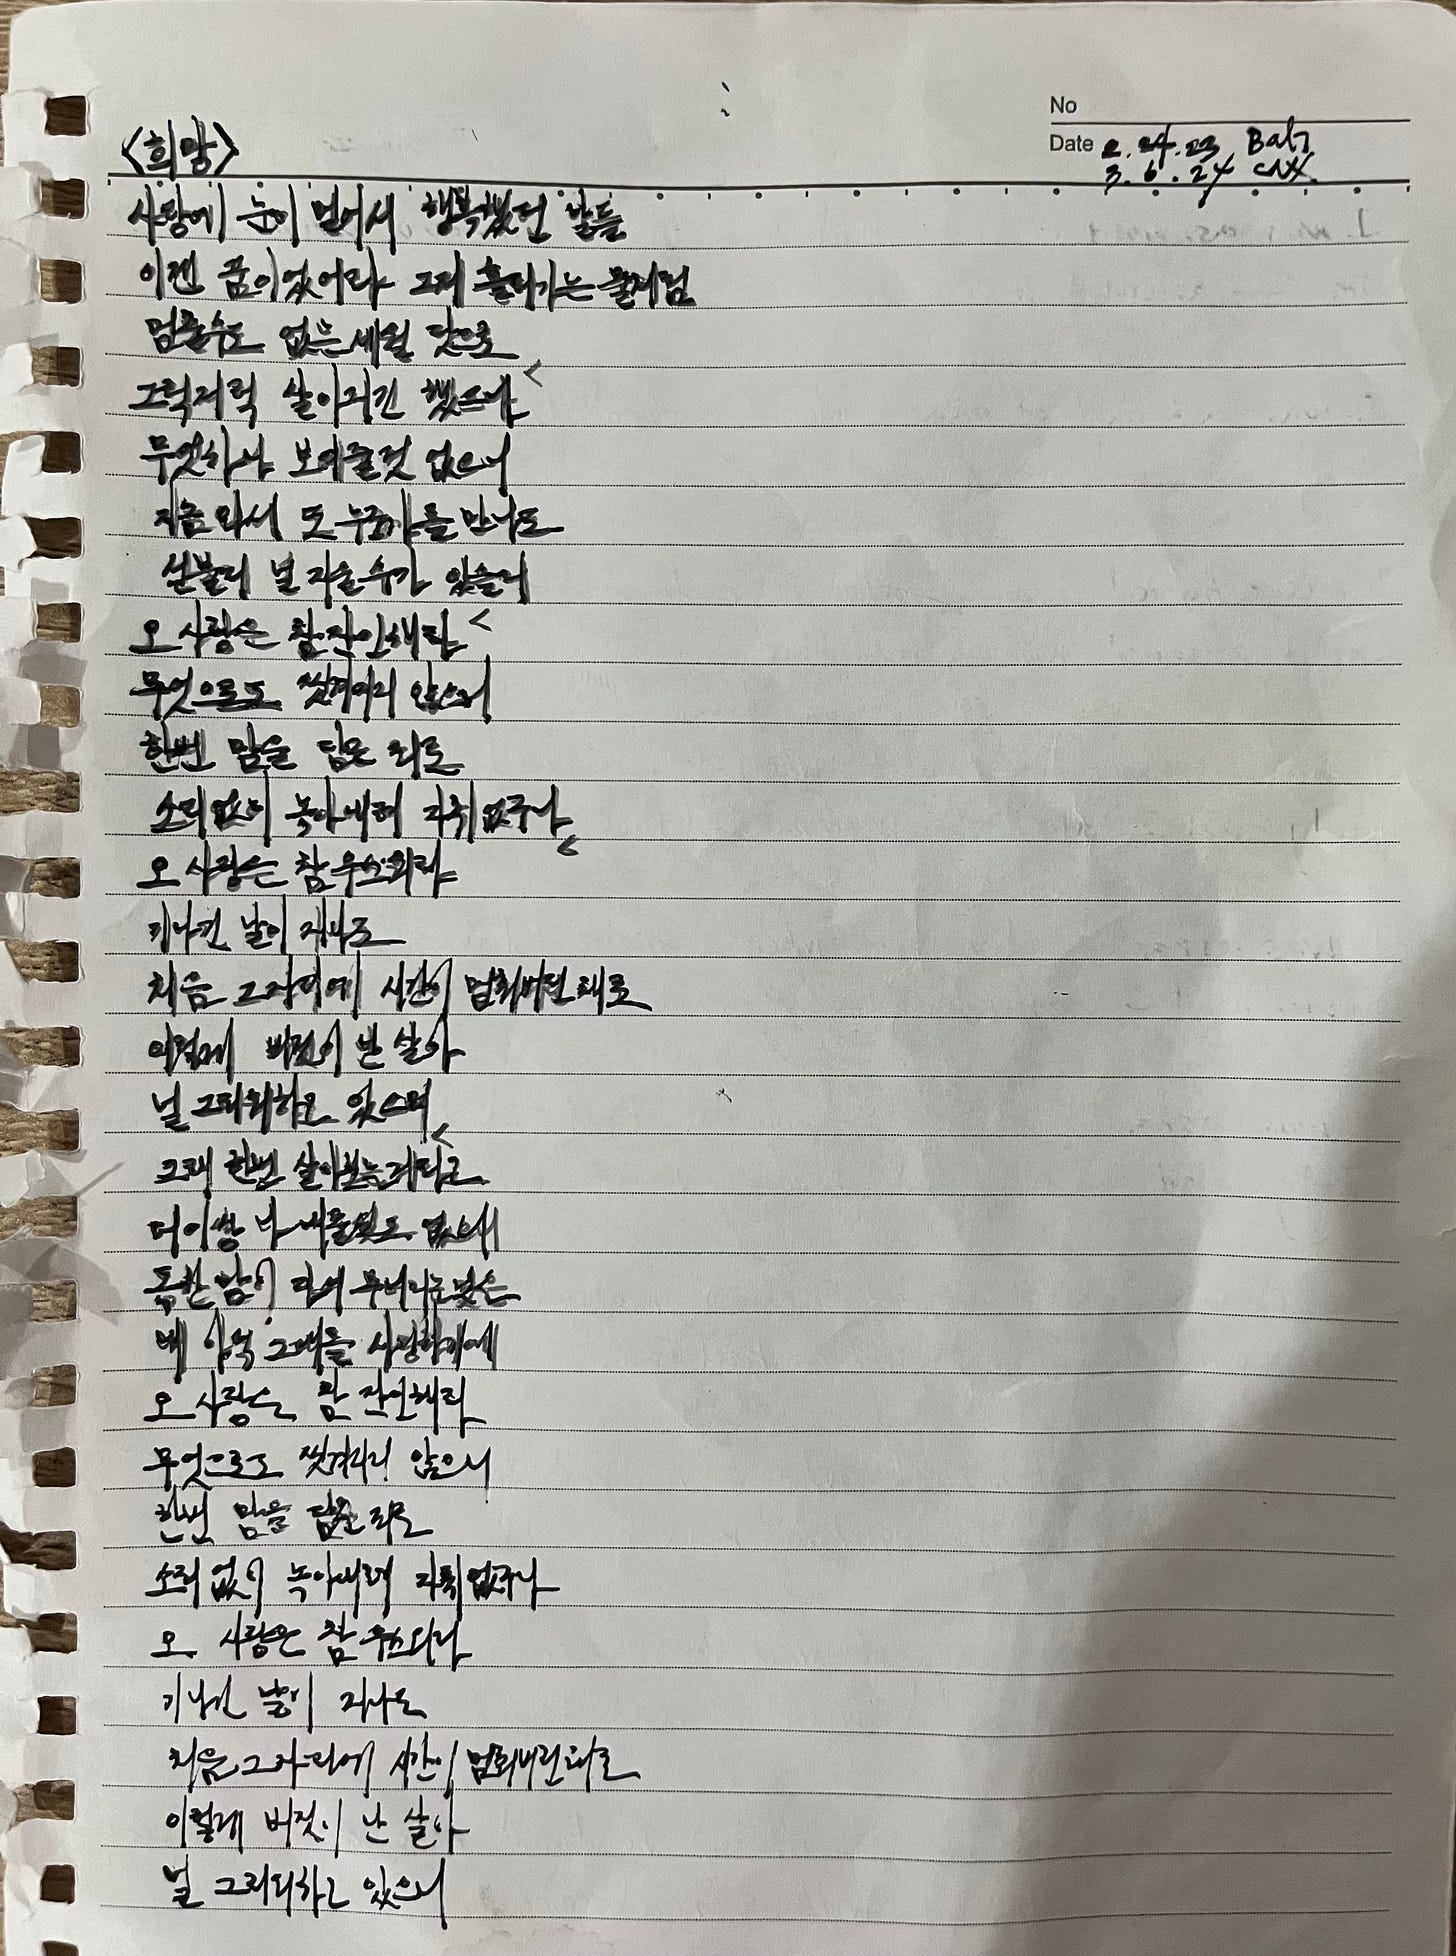 No
Date 2.24.23 Bali
3.6.24 CNX.
<희망>
사랑에 눈이 멀어서 행복했던 날들
이젠 꿈이었어라 그저 흘러가는 물처럼
멈출수도 없는 세월 탓으로
그럭저럭 살아지긴 했으나
무엇하나 보여줄것 없으니
지금 와서 또 누군가를 만나도
섣불리 널 지울수가 있을리
오 사랑은 참 잔인해라
무엇으로도 씻겨지지 않으니
한번 맘을 담은 죄로
소리없이 녹아내려 자취없구나
오 사랑은 참 우스워라
기나긴 날이 지나도
처음 그자리에 시간이 멈춰버린채로
이렇게 버젓이 난 살아
널 그리워하고 있으며
그래 한번 살아보는게라고
더이상 나 베풀것도 없으매
독한 밤이 되어 무너지고 말은
그대를 사랑하기에
오 사랑은 참 잔인해라
무엇으로도 씻겨지지 않으니
한번 맘을 담은 죄로
소리없이 녹아내려 자취없구나
오 사랑은 참 우스워라
기나긴 날이 지나도
처음 그자리에 시간이 멈춰버린채로
이렇게 버젓이 난 살아
널 그리워하고 있으니